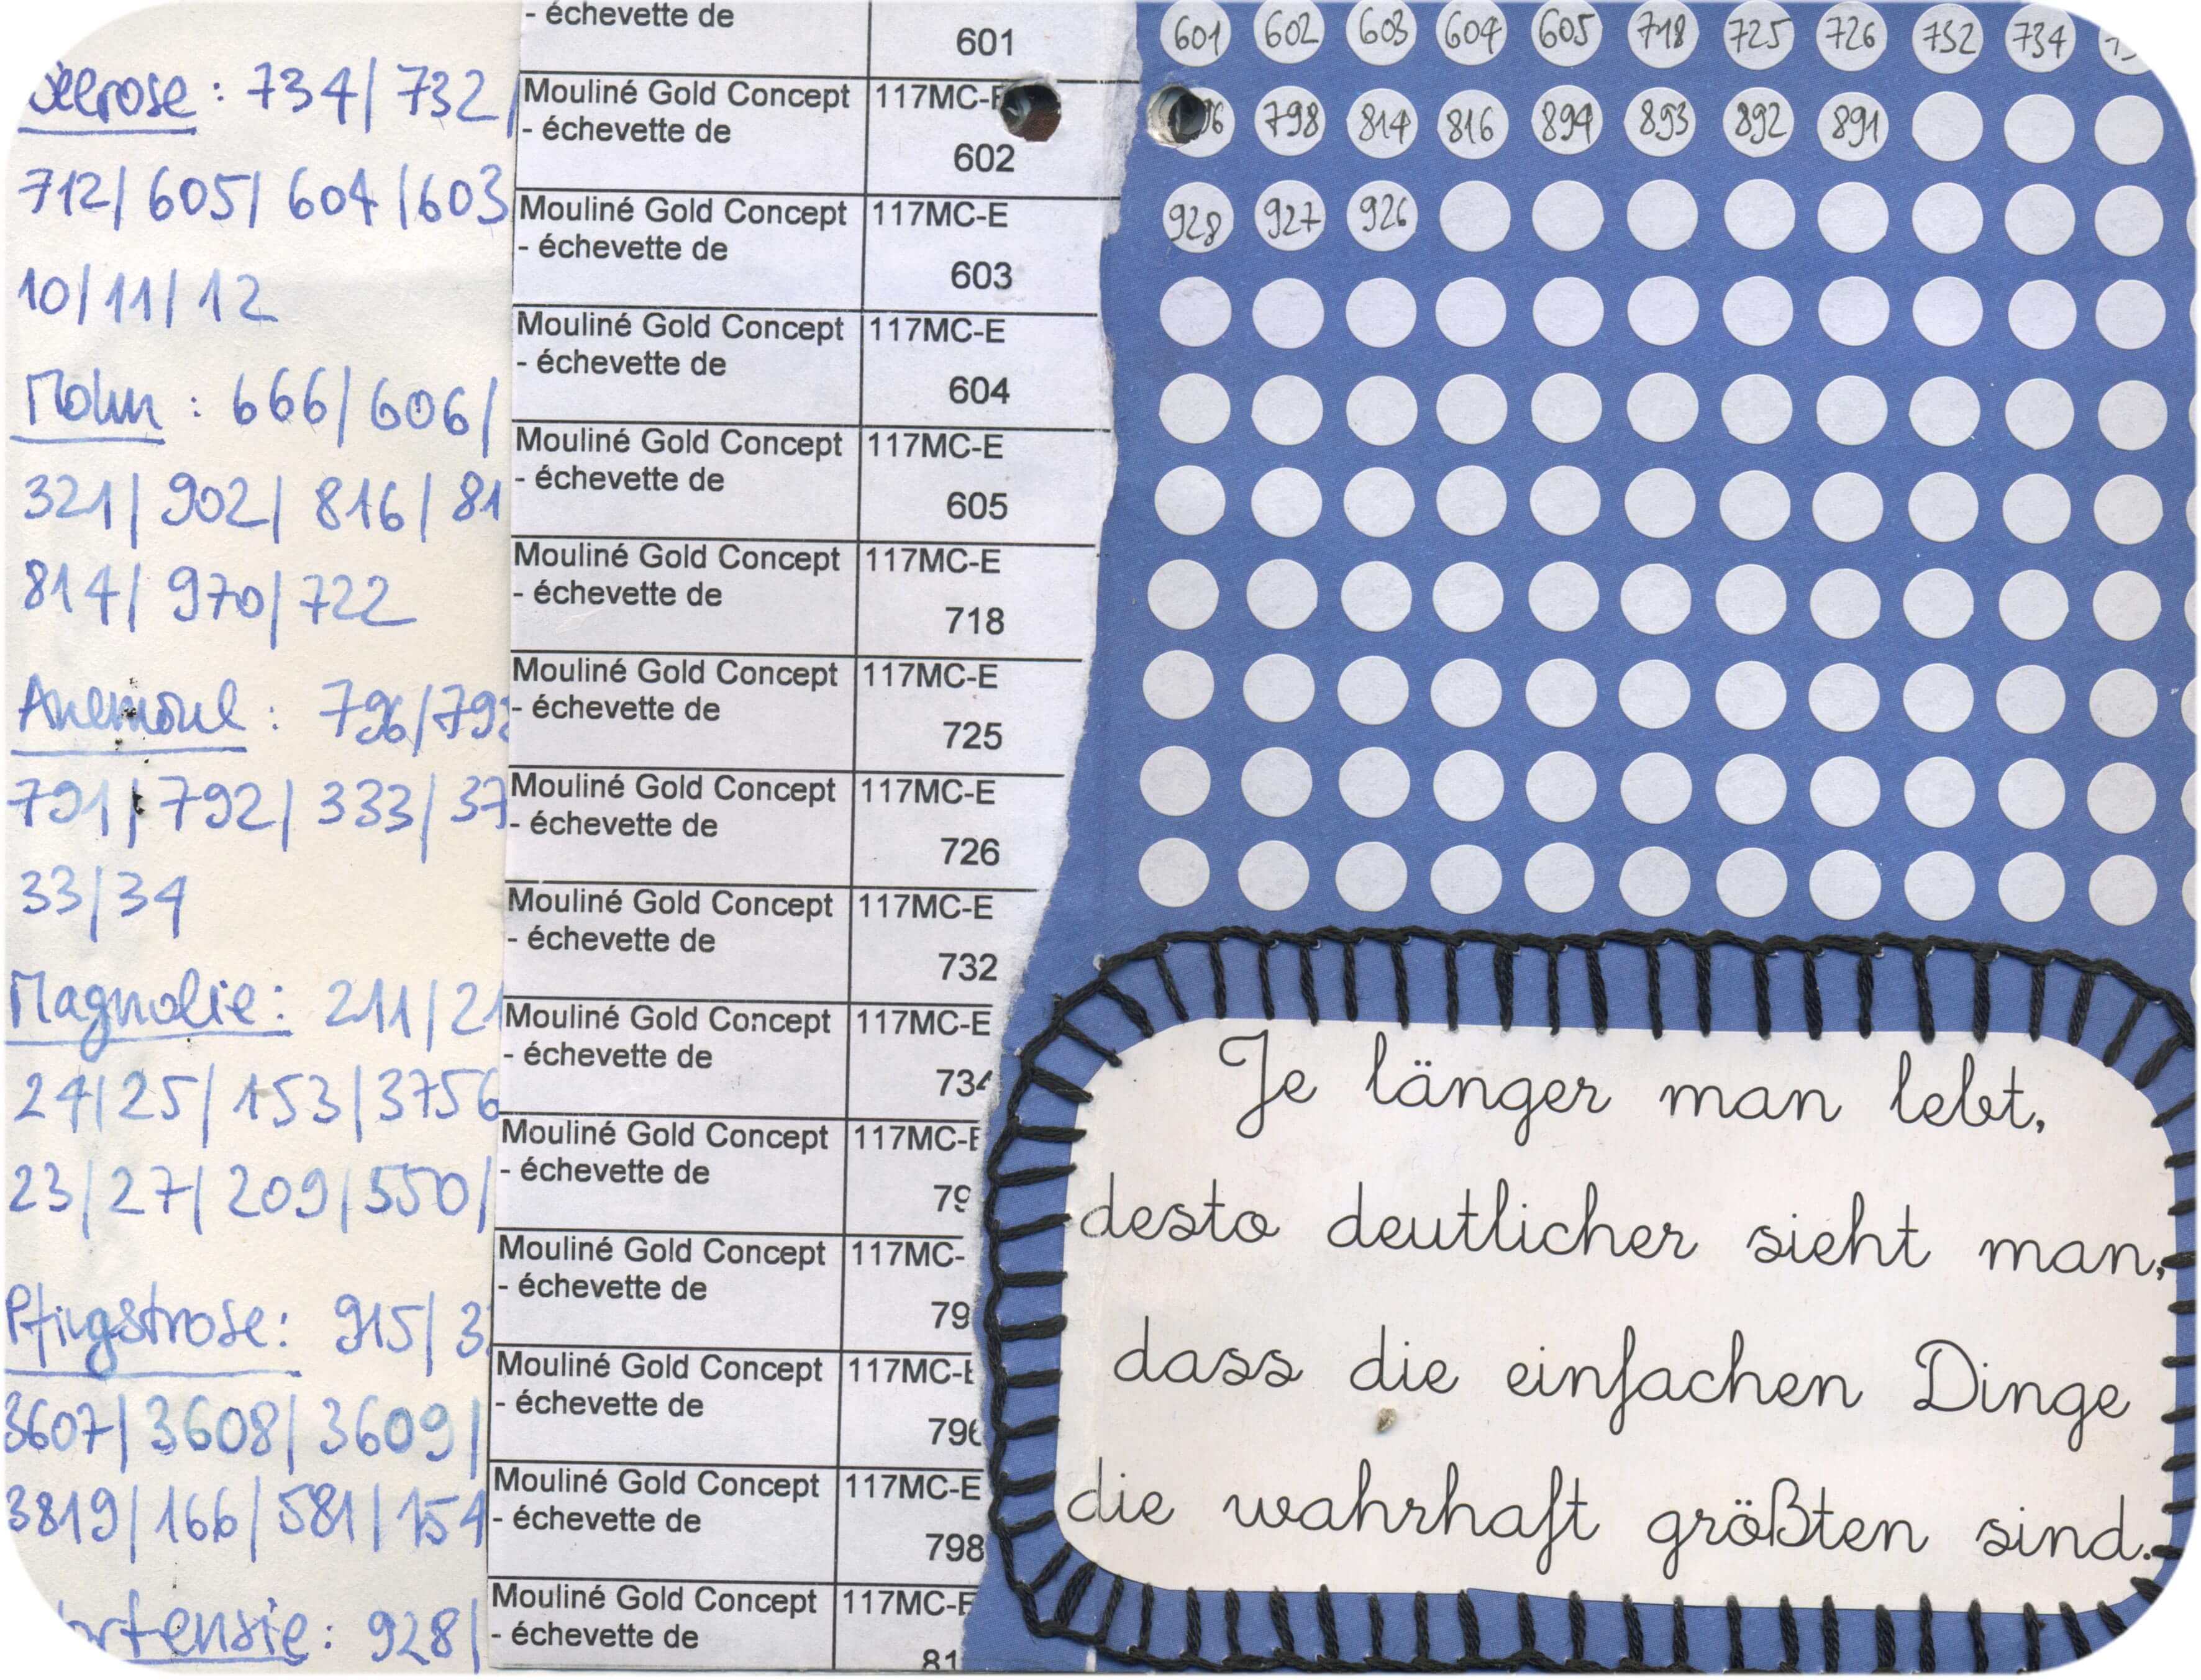 734/ 732
712/ 605/ 604 /603
10/11/12
Mohn : 666/606/
321/ 902/ 816/ 81
814/ 970/722
Anemone : 796/792
791/792/ 333/37
33/34
Magnolie: 211/21
24/25/ 153/3756
23/27/ 209/550/
Pfingstrose: 915/ 3
3607/ 3608/ 3609/
3819/166/581/154
928/
- échevette de
601
Mouliné Gold Concept 117MC-E
- échevette de
602
Mouliné Gold Concept 117MC-E
- échevette de
603
Mouliné Gold Concept 117MC-E
- échevette de
604
Mouliné Gold Concept 117MC-E
- échevette de
605
Mouliné Gold Concept 117MC-E
- échevette de
718
Mouliné Gold Concept 117MC-E
- échevette de
725
Mouliné Gold Concept 117MC-E
- échevette de
726
Mouliné Gold Concept 117MC-E
- échevette de
732
Mouliné Gold Concept 117MC-E
- échevette de
734
Mouliné Gold Concept 117MC-E
- échevette de
79
Mouliné Gold Concept 117MC-
- échevette de
79
Mouliné Gold Concept 117MC-E
- échevette de
796
Mouliné Gold Concept 117MC-E
- échevette de
798
Mouliné Gold Concept 117MC-E
- échevette de
81
601 602 603 604 605 718 725 726 732 734
798 814 816 894 893 892 891
928 927 926
Je länger man lebt,
desto deutlicher sieht man,
dass die einfachen Dinge
die wahrhaft größten sind.